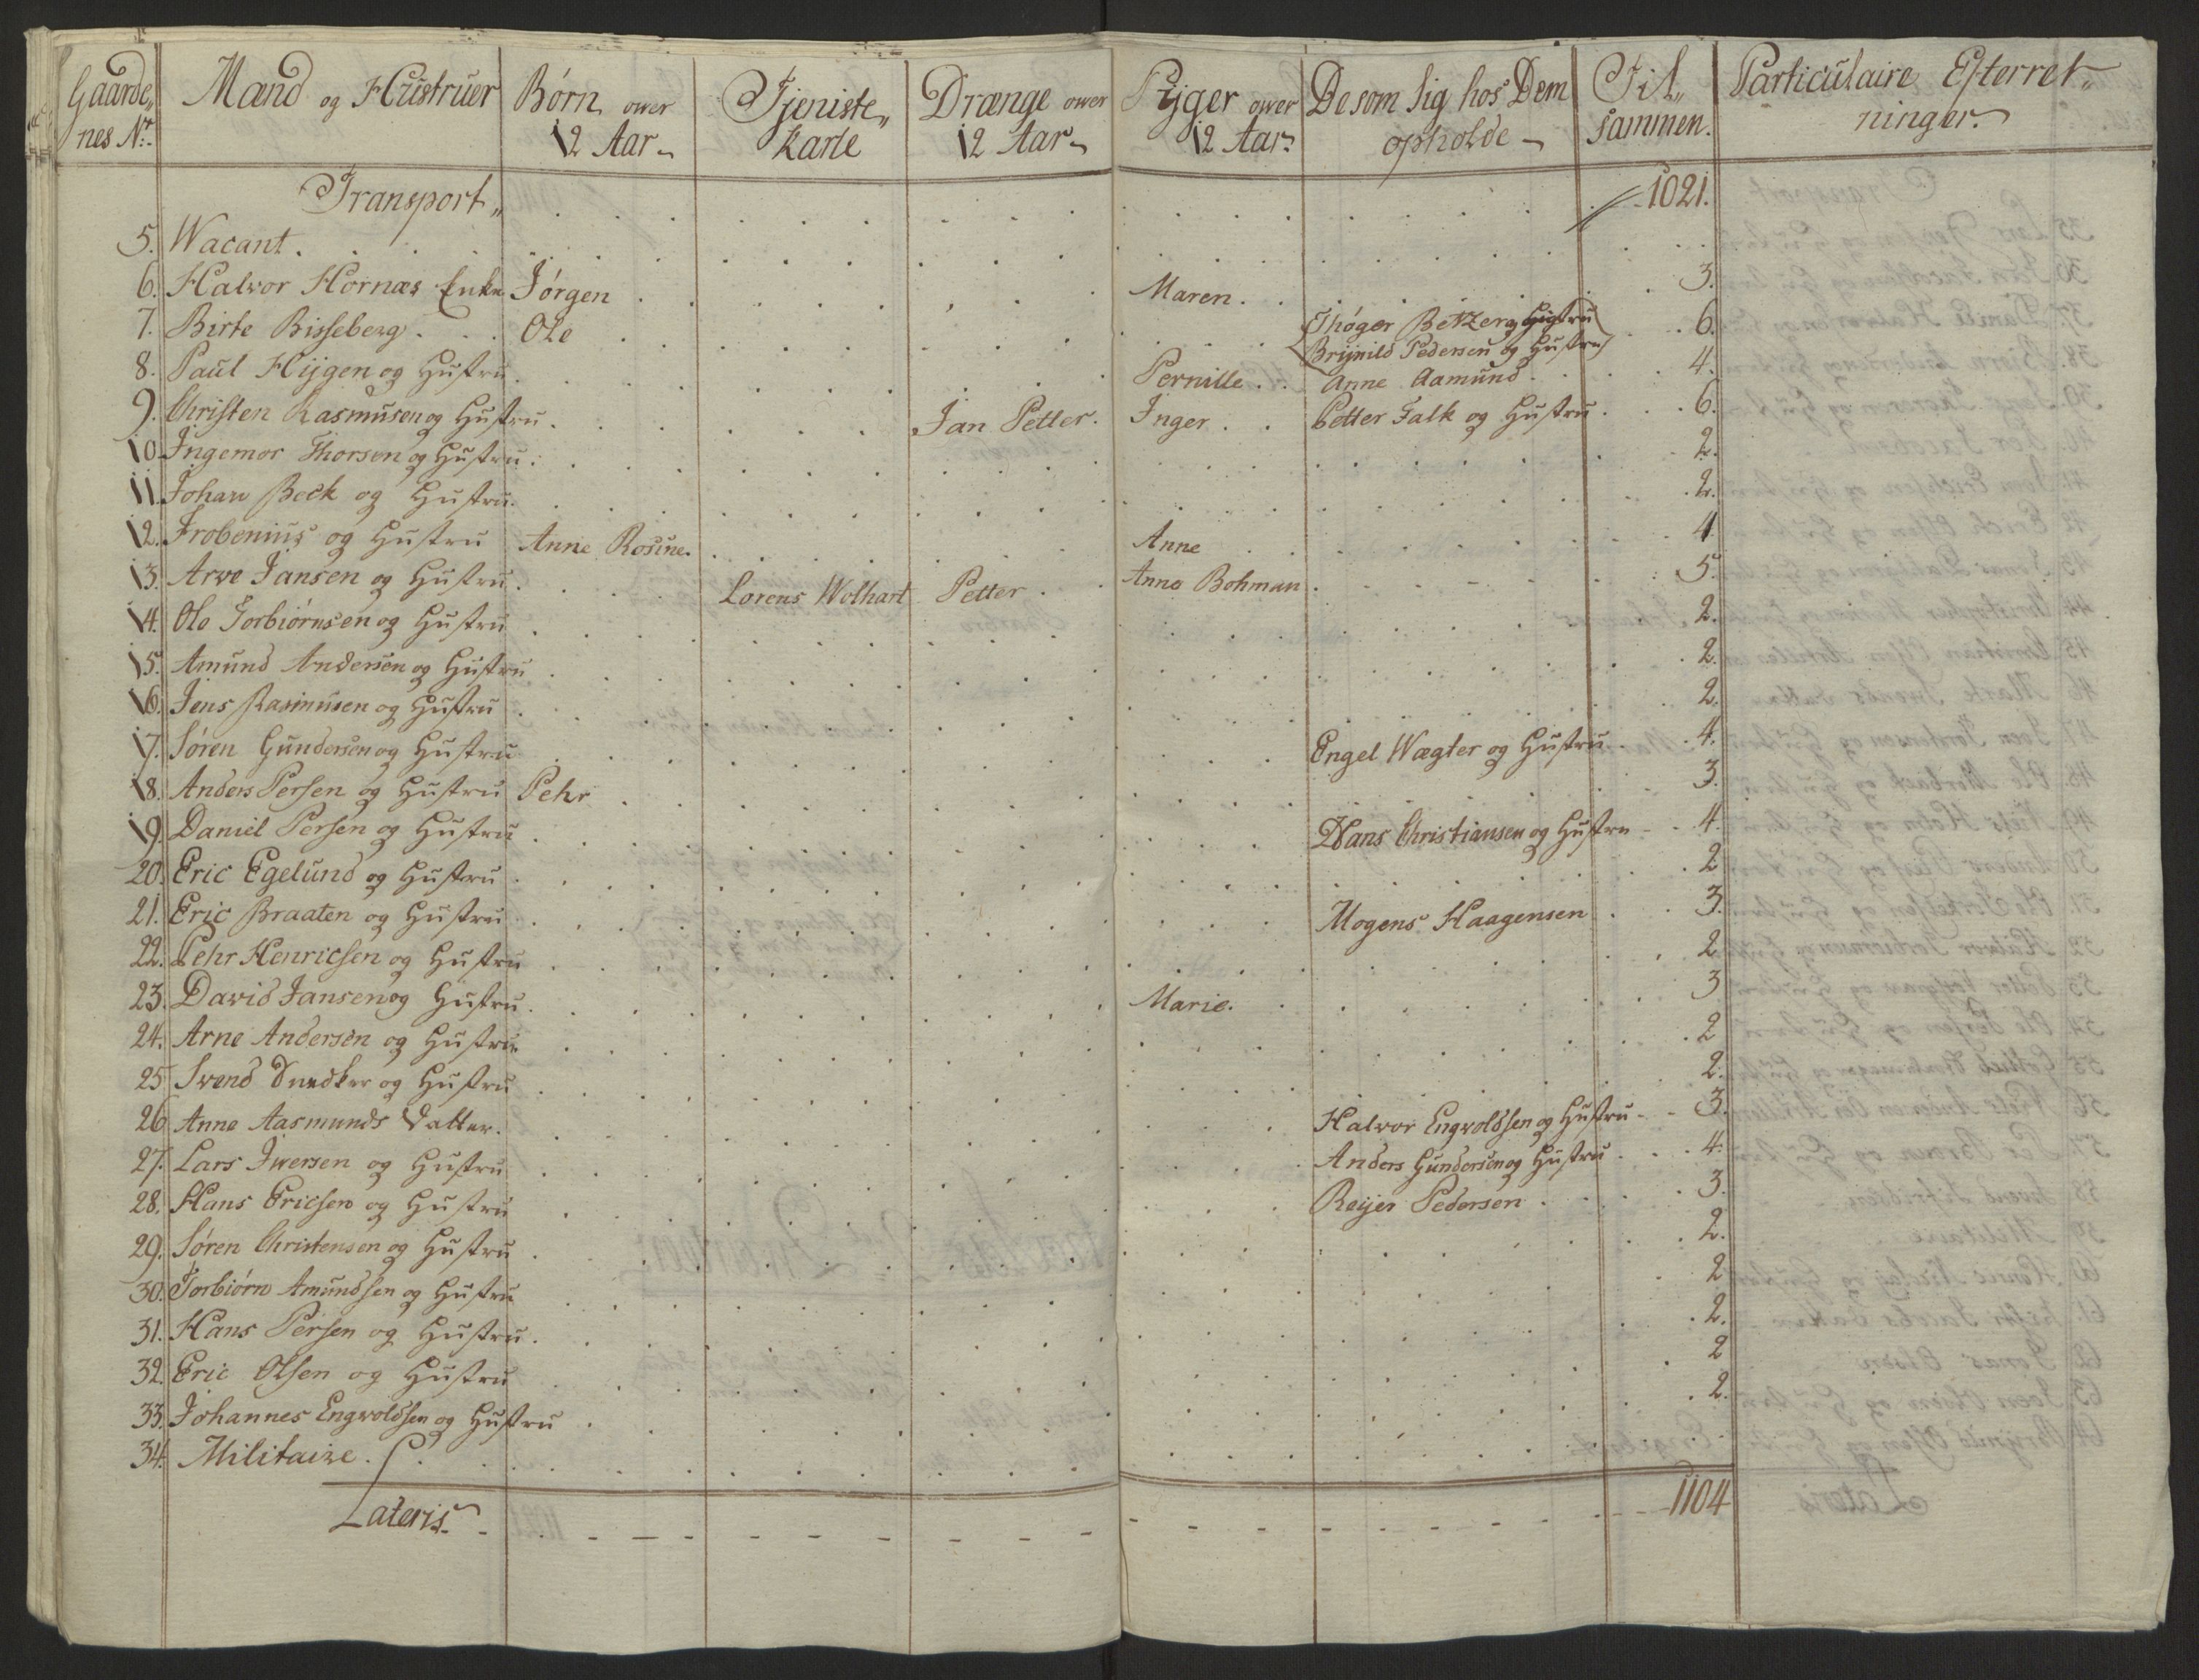 Gaarde„ nes No. | Mænd og Hustruer | Børn over 12 Aar | Tjeniste„ Karle | Drænge over 12 Aar | Pijger over 12 Aar | De som sig hos Dem opholde | Til„ sammen. | Particulaire Efterret„ ninger.
Transport„ 1021.
5. Wacant.
6. Halvor Hornæs Enke Jørgen Maren. 3.
7. Birte Bisseberg Ole Thøger Betzer og Hustru Brijnild Pedersen og Hustru 6.
8. Paul Hijgen og Hustru Pernille. Anne Aamund 4.
9. Christen Rasmusen og Hustru Jan Petter. Inger Petter Falk og Hustru 6.
10. Ingemor Thorsen og Hustru 2.
11. Johan Beck og Hustru 2.
12. Frobenius og Hustru Anne Rosine. Anne 4.
13. Arve Jansen og Hustru Lorens Wolhart Petter Anne Bohman 5.
14. Ole Torbiørnsen og Hustru 2.
15. Amund Andersen og Hustru 2.
16. Jens Rasmusen og Hustru 2.
17. Søren Gundersen og Hustru Engel Wægter og Hustru 4.
18. Anders Persen og Hustru Pehr 3.
19. Daniel Persen og Hustru Hans Christiansen og Hustru 4.
20. Eric Egelund og Hustru 2
21. Eric Braaten og Hustru Mogens Haagensen 3.
22. Pehr Henricsen og Hustru 2
23. David Jansen og Hustru Marie. 3
24. Arne Andersen og Hustru 2
25 Svend Snedker og Hustru 2.
26 Anne Aasmunds Datter. Halvor Engvoldsen og Hustru 3.
27. Lars Iversen og Hustru Anders Gundersen og Hustru 4.
28. Hans Ericsen og Hustru Reijer Pedersen 3.
29. Søren Christensen og Hustru 2.
30. Torbiørn Amundsen og Hustru 2
31. Hans Persen og Hustru 2.
32. Eric Olsen og Hustru 2
33. Johannes Engvoldsen og Hustru 2.
34. Militaire.
Lateris 1104